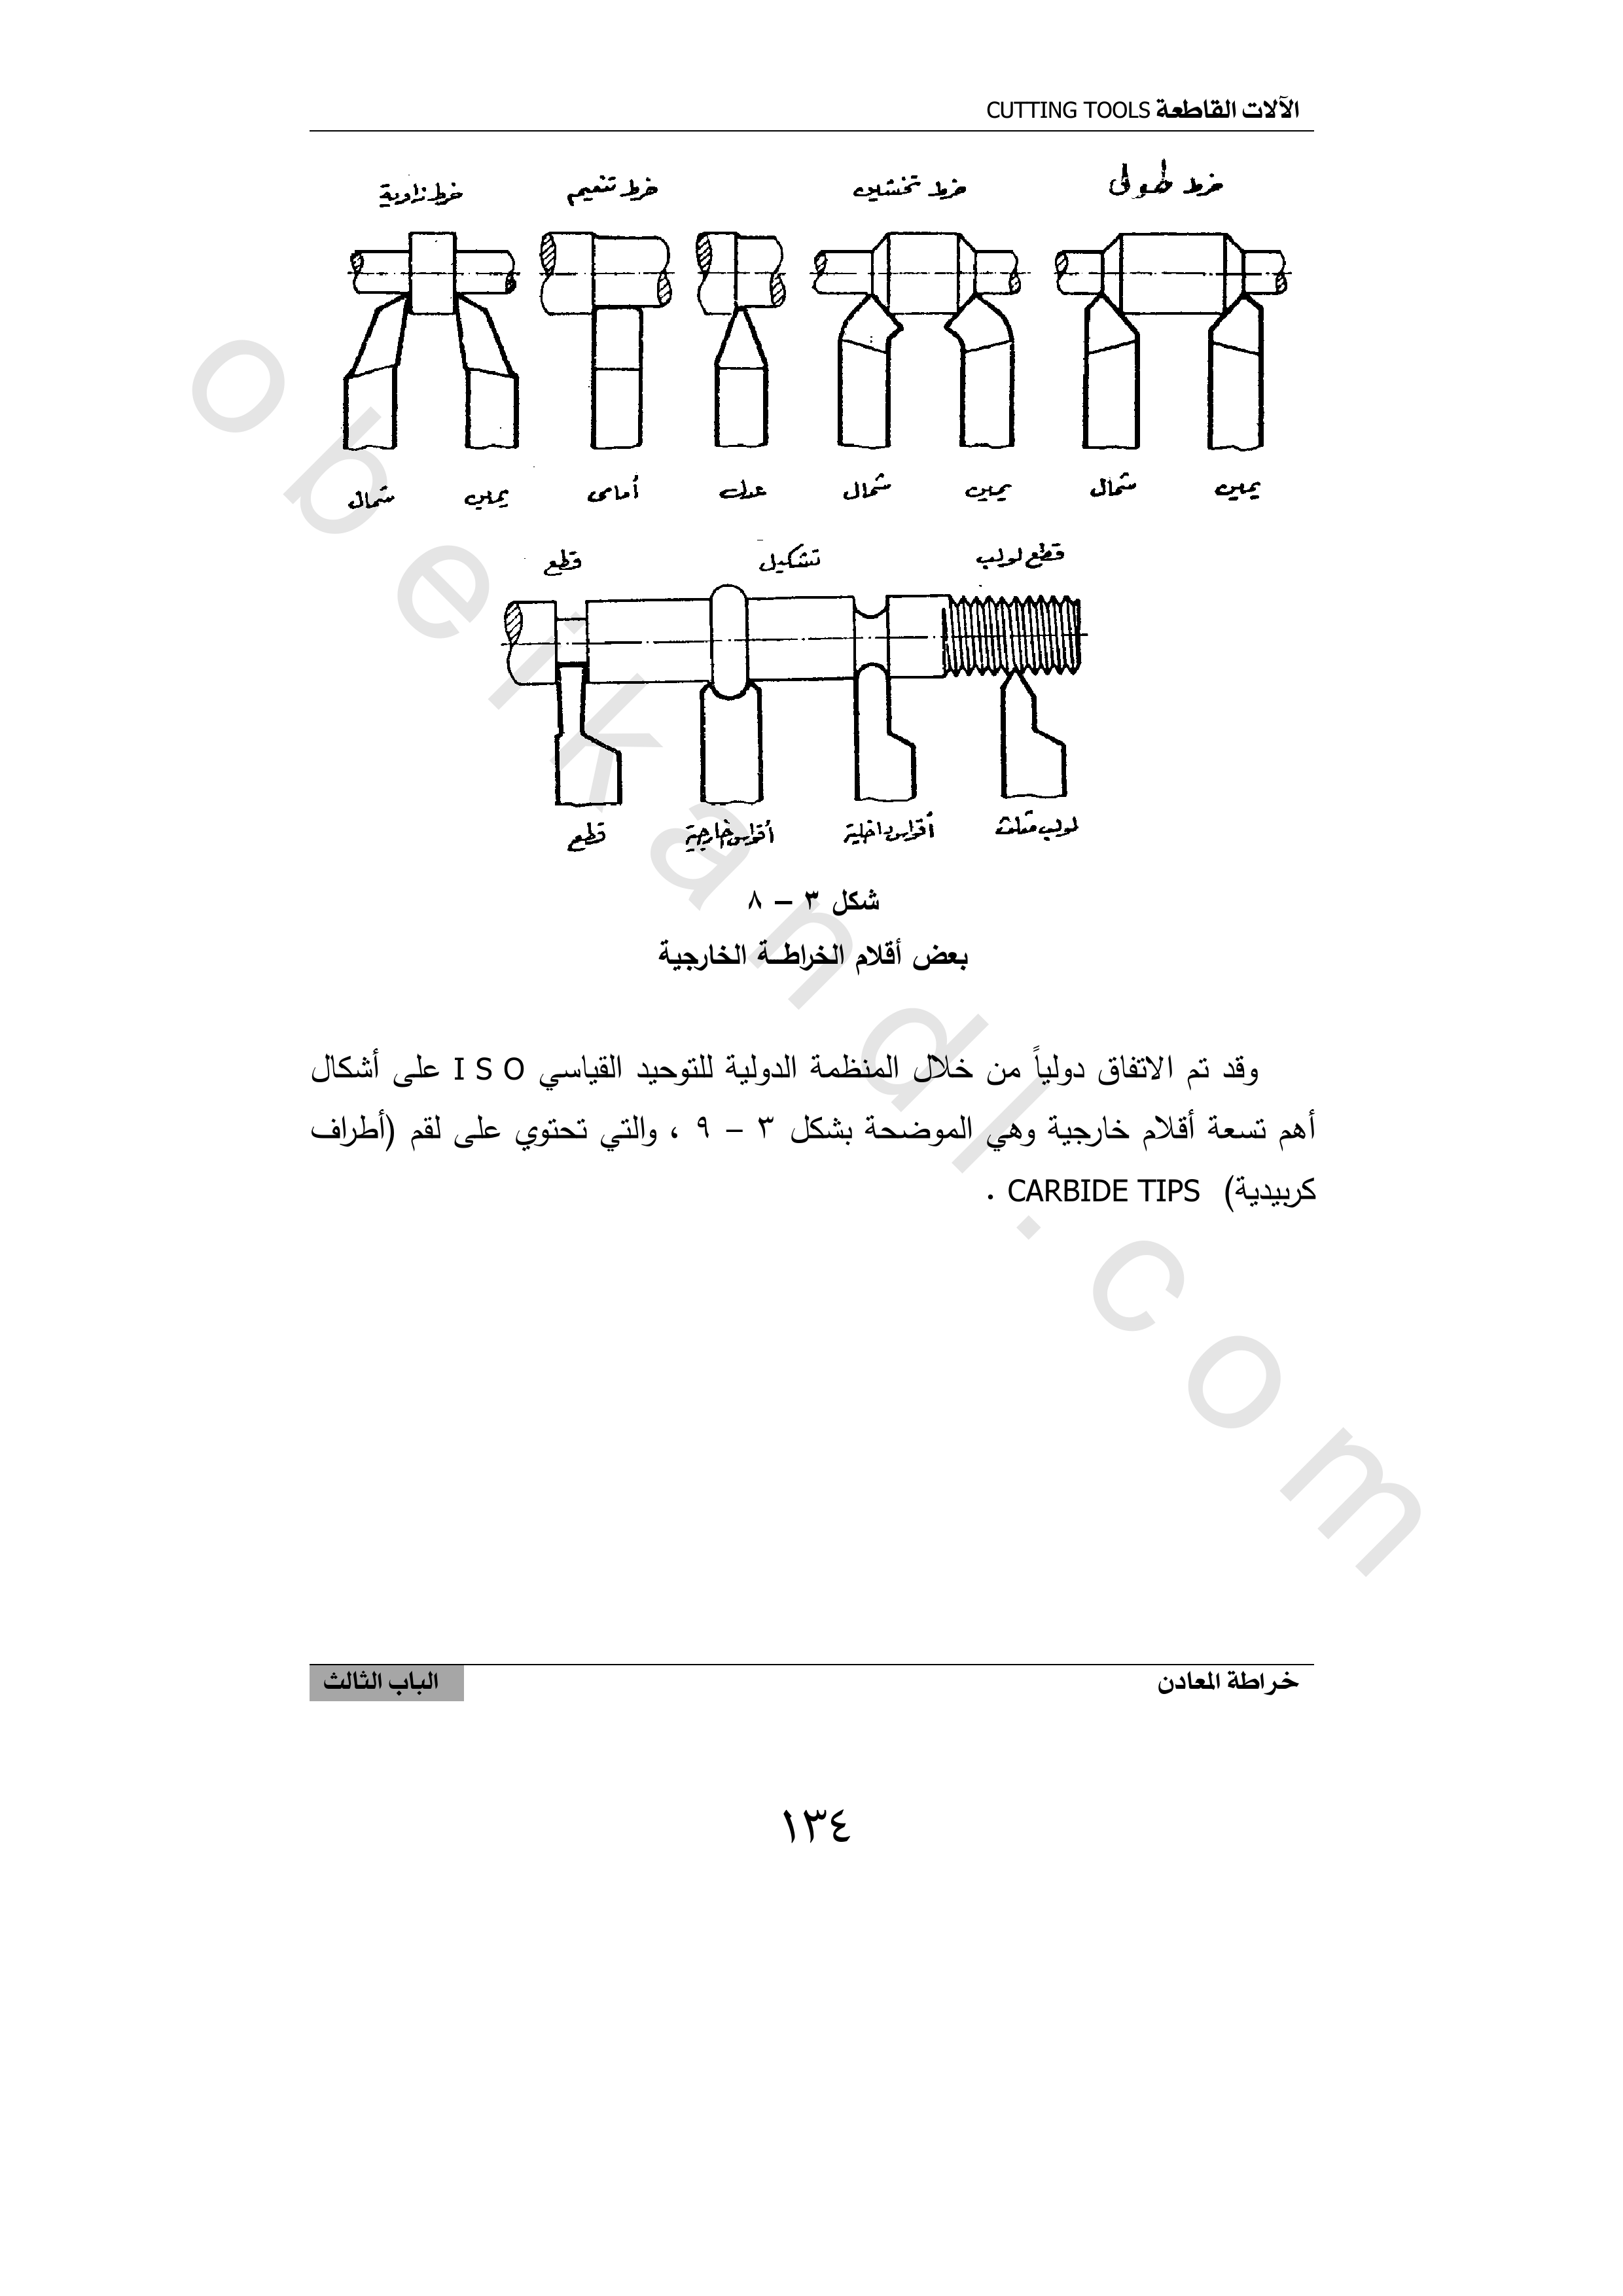 الآلات القاطعة CUTTING TOOLS
خرط طولى
خرط تخشين
خرط تنعيم
خرط زاوية
يمين
شمال
يمين
شمال
عدل
أمامى
يمين
شمال
قطع لولب
تشكيل
قطع
لولب مثلث
أقواس داخلية
أقواس خارجية
قطع
شكل ٣ – ٨
بعض أقلام الخراطــة الخارجية
وقد تم الاتفاق دولياً من خلال المنظمة الدولية للتوحيد القياسي I S O على أشكال
أهم تسعة أقلام خارجية وهي الموضحة بشكل ٣ – ٩ ، والتي تحتوي على لقم (أطراف
كربيدية) CARBIDE TIPS .
خراطة المعادن
الباب الثالث
١٣٤
obeikandl.com